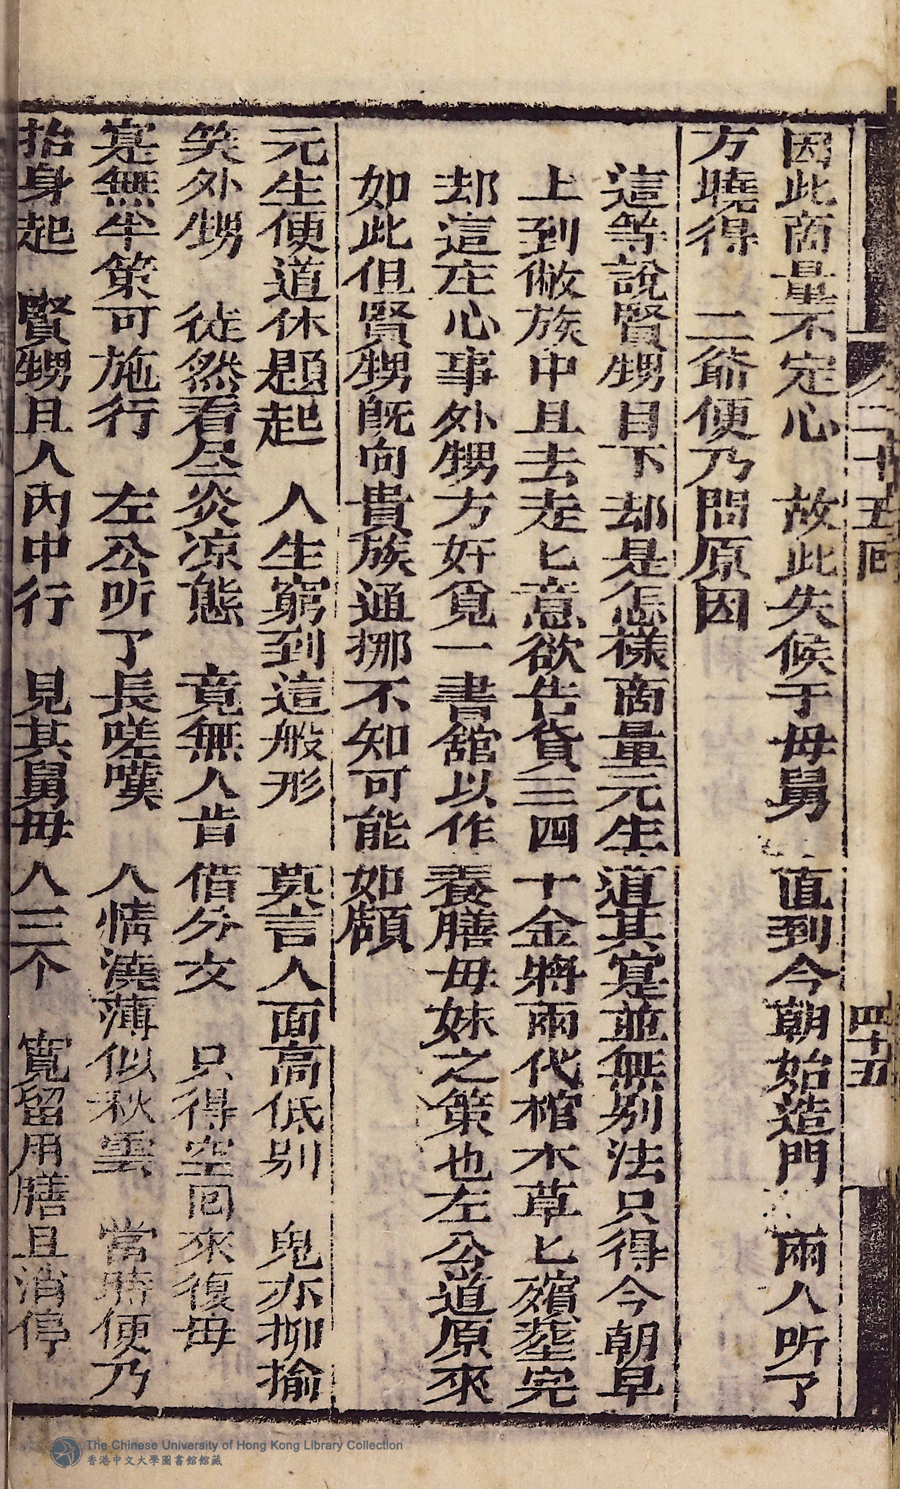 二十五回
四十五
因此商量不定心 故此失候于毋舅 直到今朝始造門 兩人听了
方曉得 二爺便乃問原因
這等說賢甥目下却是怎樣商量元生道其寔並無别法只得今朝早
上到敝族中且去走匕意欲告貸三四十金將兩代棺木草匕殯塟完
却這庄心事外甥方好覓一書舘以作養膳毋妹之策也左公道原來
如此但賢甥旣向貴族通挪不知可能如願
元生便道休題起 人生窮到這般形 莫言人面高低别 鬼亦揶揄
笑外甥 徒然看尽炎凉態 竟無人肯借分文 只得空囘來復毋
寔無半策可施行 左公听了長嗟嘆 人情澆薄似秋雲 當時便乃
抬身起 賢甥且人內中行 見其舅毋人三个 寬留用膳且消停
The Chinese University of Hong Kong Library Collection
香港中文大學圖書館館藏